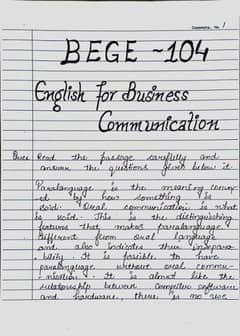 BEGE - 104
English for Business
Communication
Ques Read the passage carefully and
answer the questions given below it.
Paralanguage is the meaning convey-
ed by how something is
said. Oral communication is what
is said. This is the distinguishing
features that makes paralanguage
different from oral language
and also indicates their
bility. It is possible to have
paralanguage without oral commu-
nication. It is almost like the
relationship between computer software
and hardware, there is no use